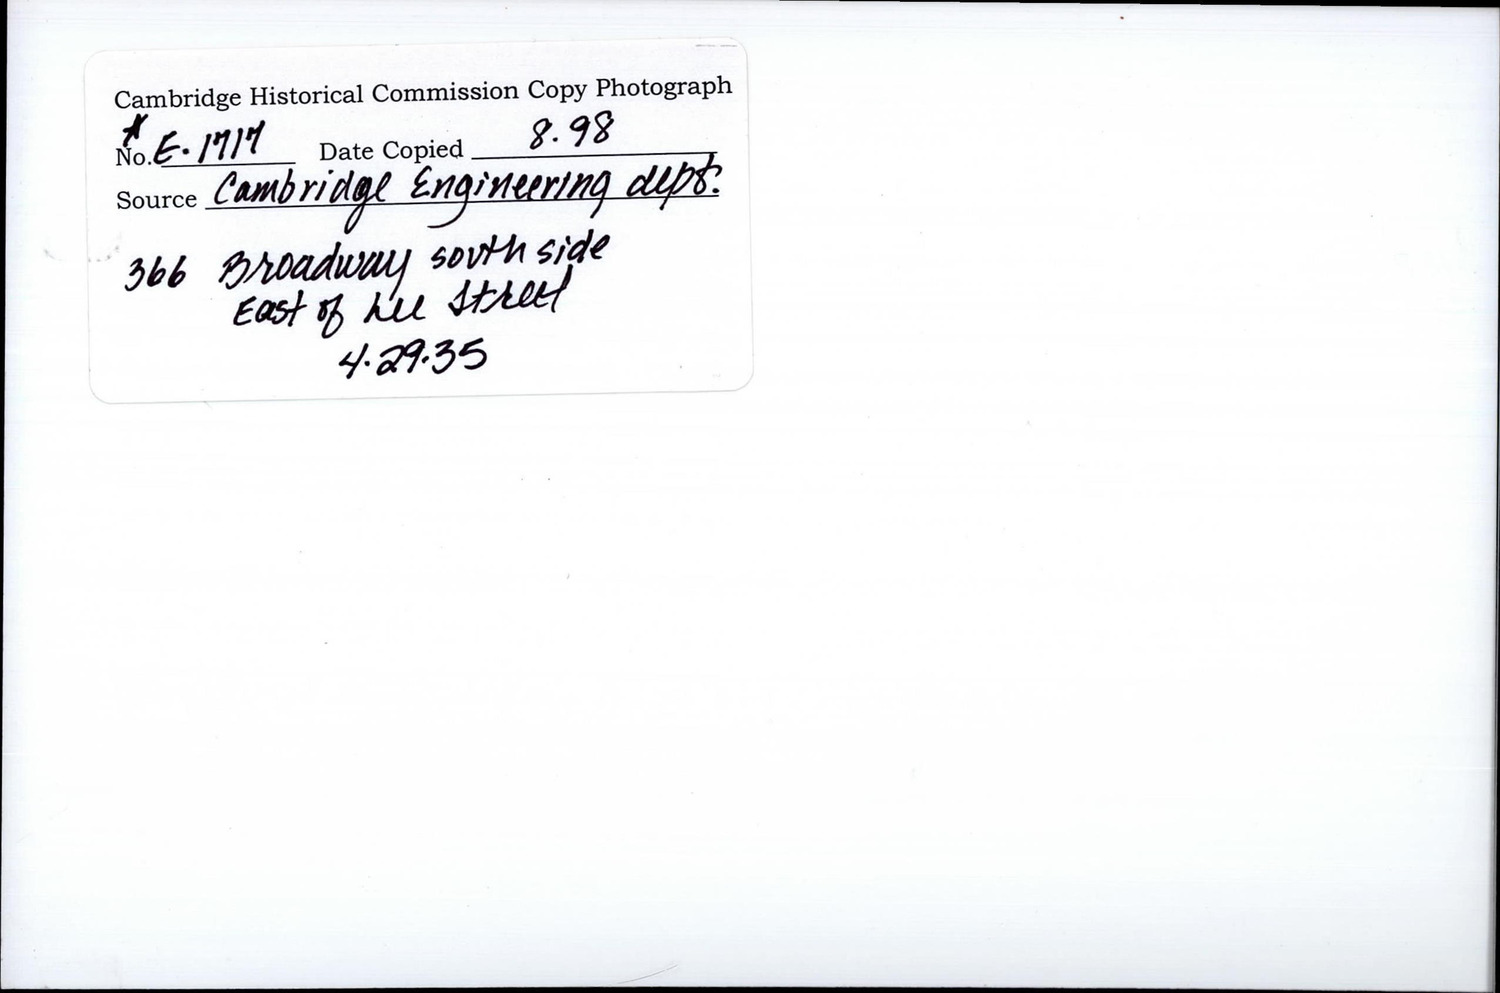 Cambridge Historical Commission Copy Photograph
*
No. E.1717 Date Copied 8.98
Source Cambridge Engineering dept.
366 Broadway south side
East of Lee Street
4.29.35